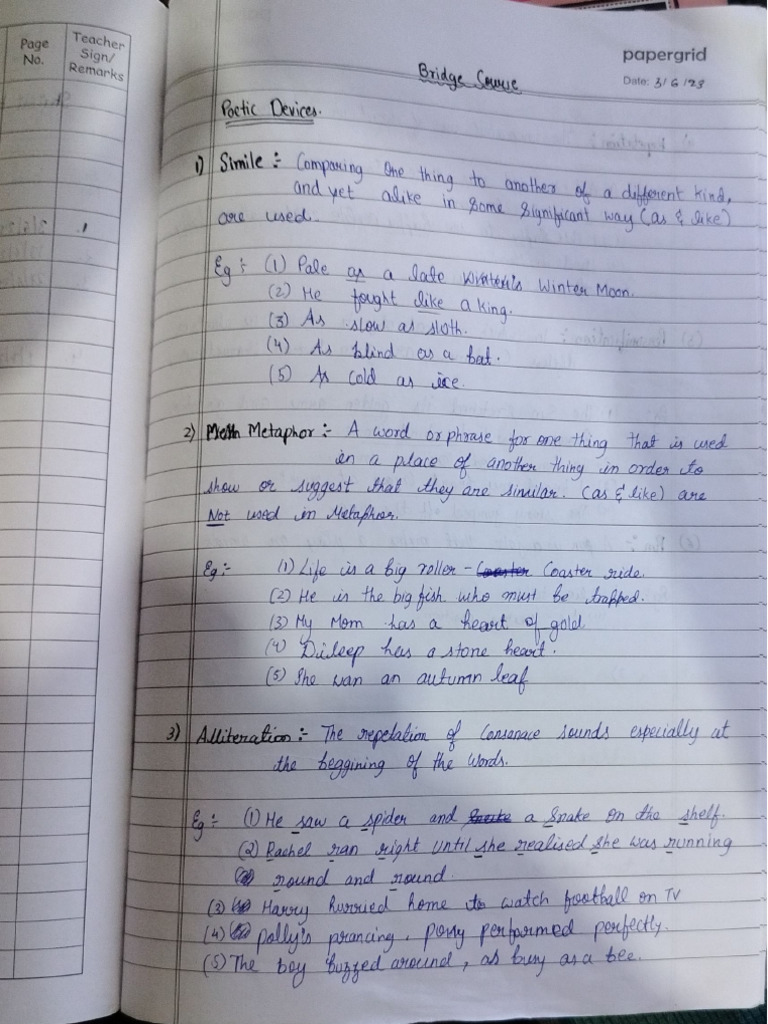 Page No.
Teacher Sign/ Remarks
papergrid
Bridge Course
Date: 3/6/23
Poetic Devices.
1) Simile :- Comparing One thing to another of a different kind,
and yet alike in some significant way (as & like)
are used.
Eg :- (1) Pale as a late Winter Moon.
(2) He fought like a king.
(3) As slow as sloth.
(4) As blind as a bat.
(5) As cold as ice.
2) Metaphor :- A word or phrase for one thing that is used
in a place of another thing in order to
show or suggest that they are similar. (as & like) are
Not used in Metaphor.
Eg :- (1) Life is a big roller - Coaster ride.
(2) He is the big fish who must be trapped.
(3) My Mom has a heart of gold
(4) Dileep has a stone heart.
(5) She wan an autumn leaf
3) Alliteration :- The repetation of Consonace sounds especially at
the beggining of the words.
Eg :- (1) He saw a spider and a Snake on the shelf.
(2) Rachel ran right until she realised she was running
round and round.
(3) Harry hurried home to watch football on TV
(4) polly's prancing, pony performed perfectly.
(5) The boy buzzed around, as busy as a bee.